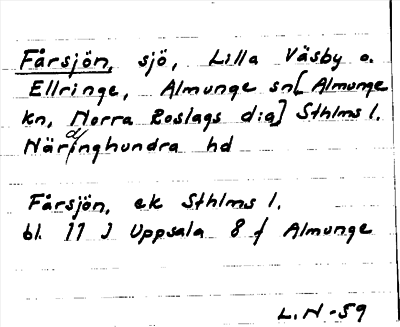 Fårsjön, sjö, Lilla Väsby o.
Ellringe, Almunge sn [Almunge
kn, Norra Roslags d:a] Sthlms l.
Närdinghundra hd
Fårsjön, ek Sthlms l.
bl. 11 J Uppsala 8 f Almunge
L.N-59